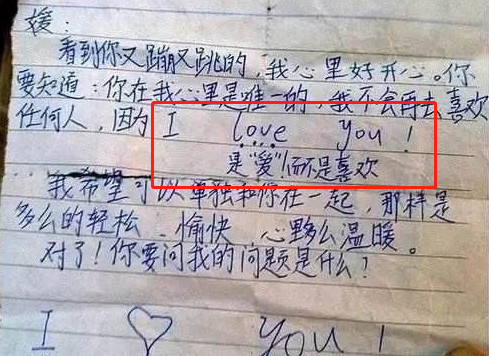 媛：
看到你又蹦又跳的，我心里好开心。你
要知道：你在我心里是唯一的，我不会再去喜欢
任何人，因为 I love you！
是“爱”而不是喜欢
我希望可以单独和你在一起，那样是
多么的轻松．愉快 心里多么温暖。
对了！你要问我的问题是什么？
I ♡ you！